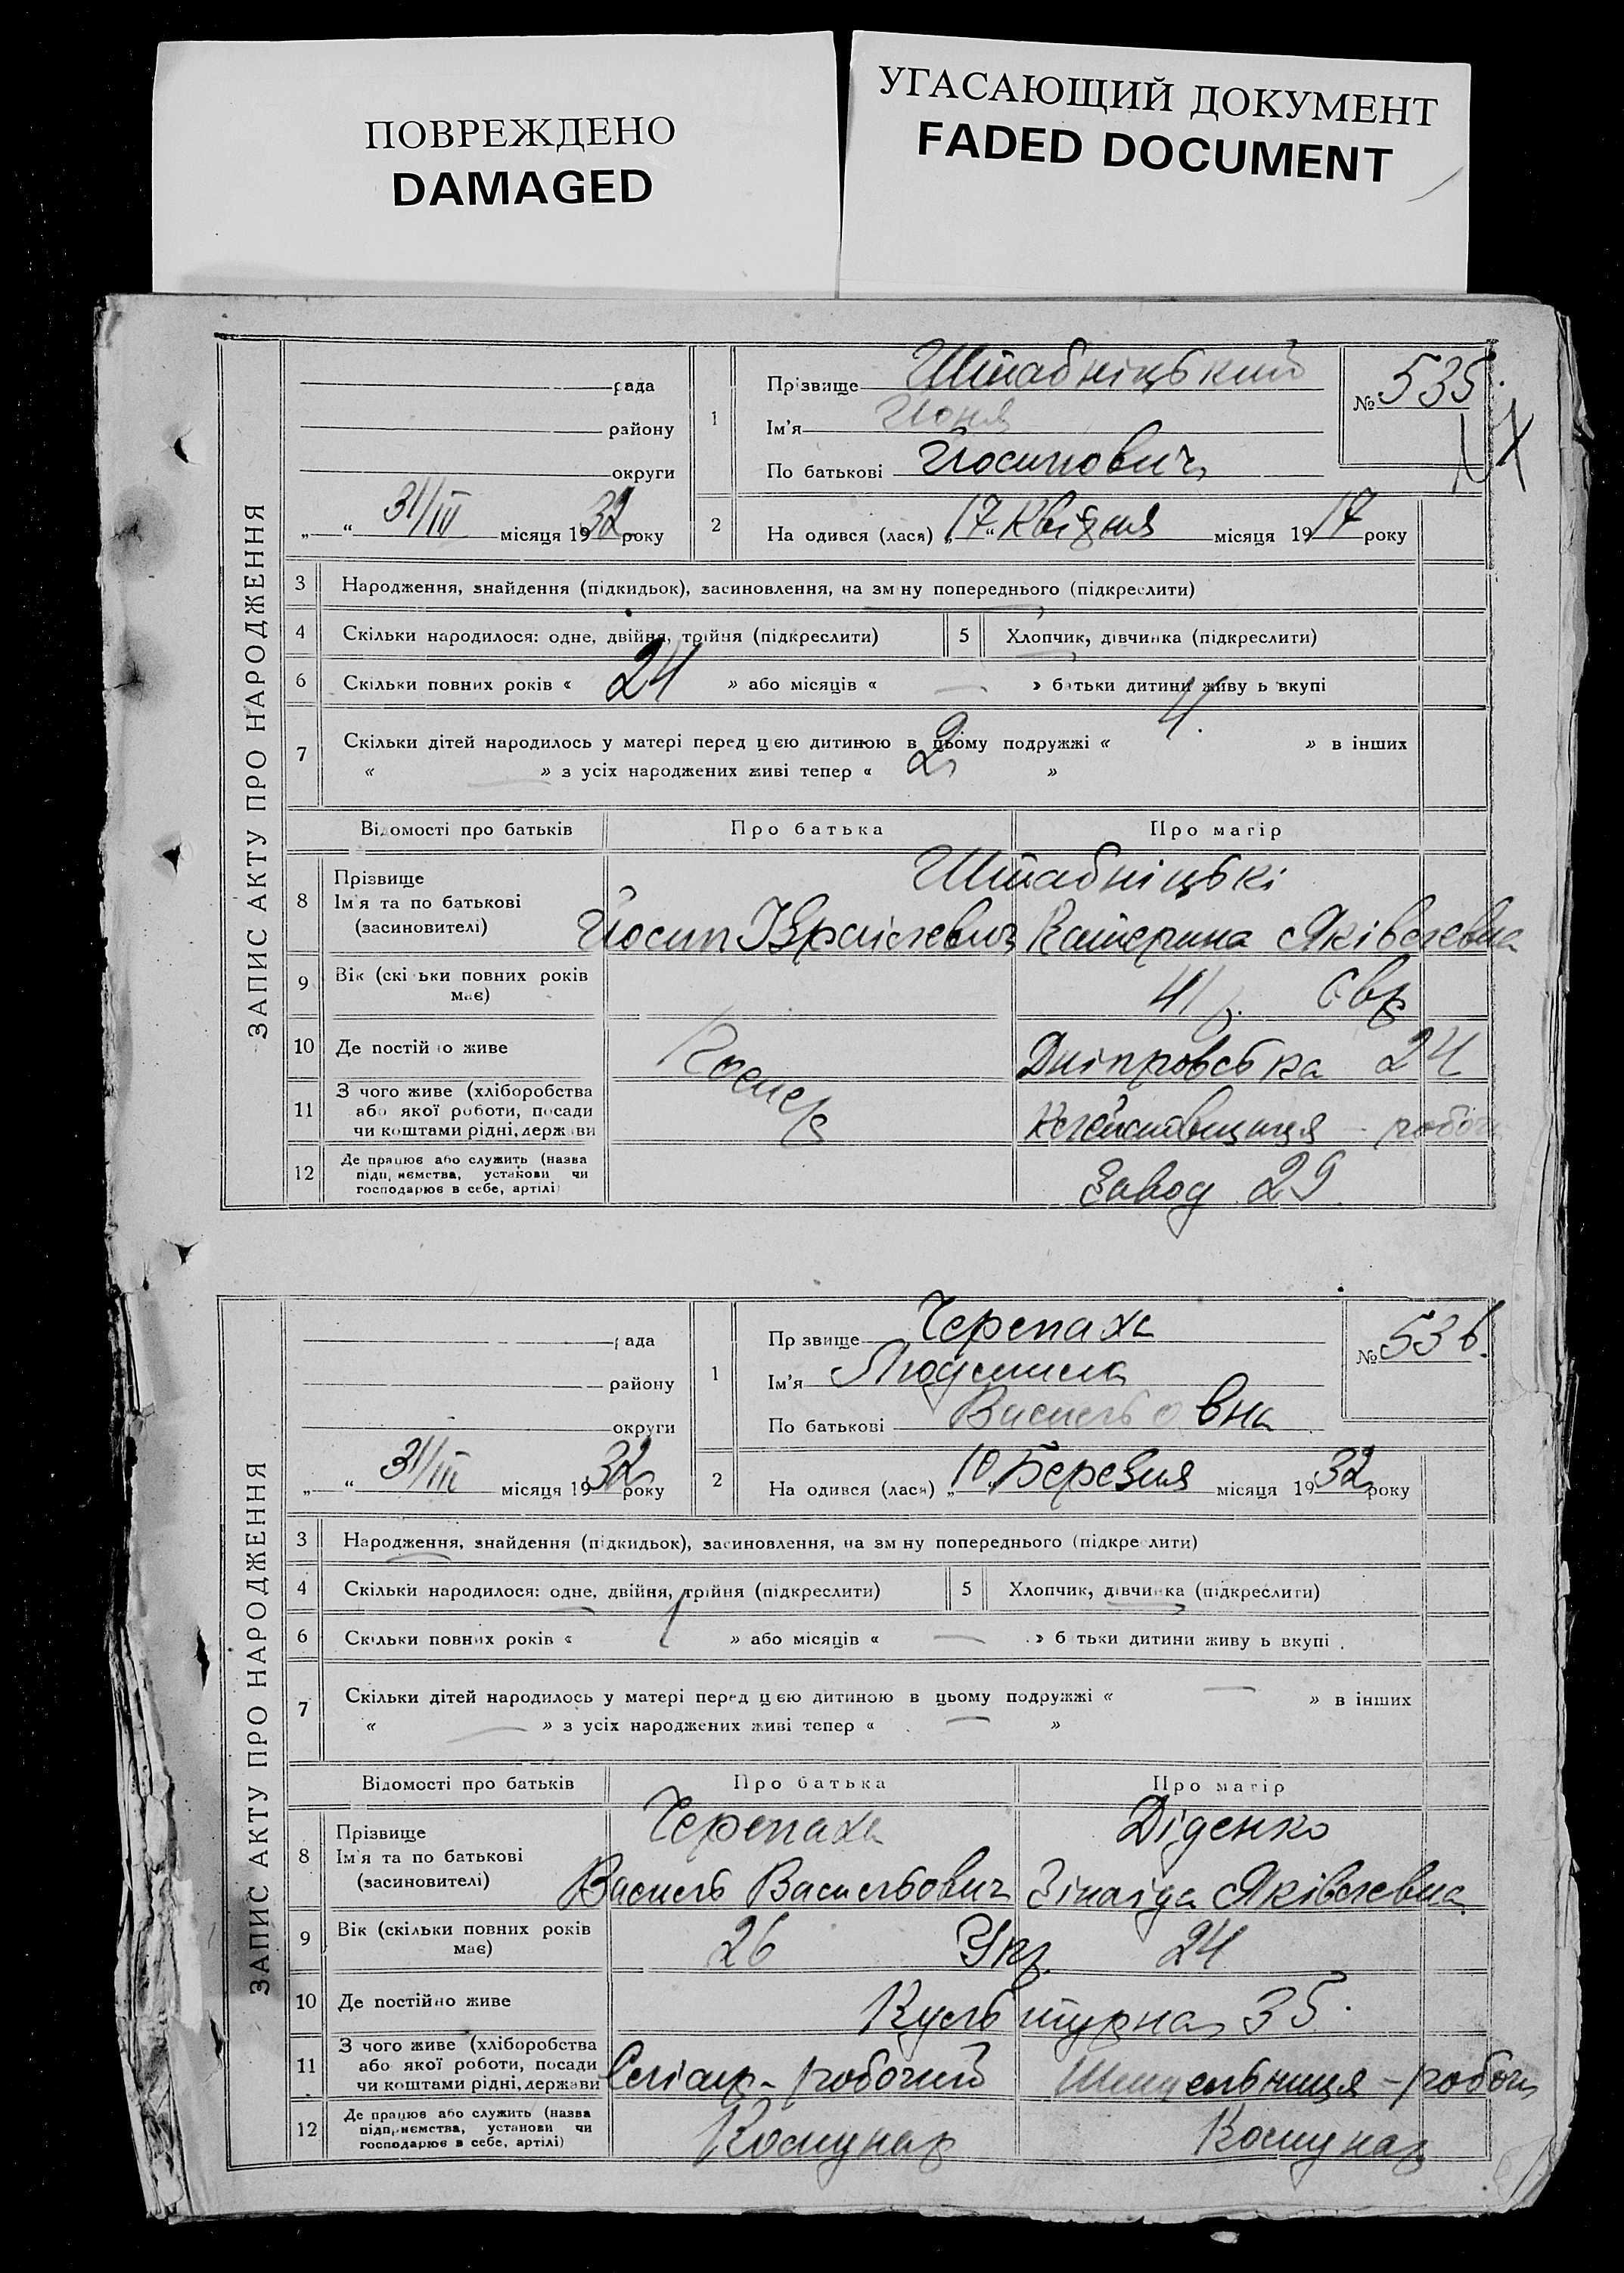 ПОВРЕЖДЕНО
DAMAGED
УГАСАЮЩИЙ ДОКУМЕНТ
FADED DOCUMENT
ЗАПИС АКТУ ПРО НАРОДЖЕННЯ
рада
району
округи
„ “ 31/III місяця 1932 року
1
Прізвище Штабніцький
Ім'я Йоня
По батькові Йосипович
№ 535.
2
На одився (лася) „17“ Квітня місяця 1917 року
3 Народження, знайдення (підкидьок), засиновлення, на зм ну попереднього (підкреслити)
4 Скільки народилося: одне, двійня, трійня (підкреслити) 5 Хлопчик, дівчинка (підкреслити)
6 Скільки повних років « 24 » або місяців « — » батьки дитини живу ь вкупі
7 Скільки дітей народилось у матері перед цією дитиною в цьому подружжі « 4. » в інших
« — » з усіх народжених живі тепер « 2 »
Відомості про батьків Про батька Про матір
8 Прізвище
Ім'я та по батькові
(засиновителі)
Штабніцькі
Йосип Катерина Яківлевна
9 Вік (скі ьки повних років має)
41 р. Євр
10 Де постій о живе
Дніпровська 24
11 З чого живе (хліборобства
або якої роботи, посади
чи коштами рідні, держ ви
робоч
12 Де працює або служить (назва
підп, иємства, установи чи
господарює в себе, артілі)
Завод 29
ЗАПИС АКТУ ПРО НАРОДЖЕННЯ
рада
району
округи
„ “ 31/III місяця 1932 року
1
Пр звище Черепаха
Ім'я Людмила
По батькові Васильовна
№ 536.
2
На одився (лася) „10 Березня місяця 1932 року
3 Народження, знайдення (підкидьок), засиновлення, на зм ну попереднього (підкре лити)
4 Скільки народилося: одне, двійня, трійня (підкреслити) 5 Хлопчик, дівчинка (підкреслити)
6 Скільки повних років « 1 » або місяців « — » б тьки дитини живу ь вкупі
7 Скільки дітей народилось у матері перед цією дитиною в цьому подружжі « — » в інших
« — » з усіх народжених живі тепер « — »
Відомості про батьків Про батька Про матір
8 Прізвище
Ім'я та по батькові
(засиновителі)
Черепаха Діденко
Василь Васильович Зінаіда Яківлевна
9 Вік (скільки повних років має)
26 Укр. 24
10 Де постійно живе
Культурна 35.
11 З чого живе (хліборобства
або якої роботи, посади
чи коштами рідні, держави
Слюсар - робочий - робоч
12 Де працює або служить (назва
підпр иємства, установи чи
господарює в себе, артілі)
Комунар Комунар